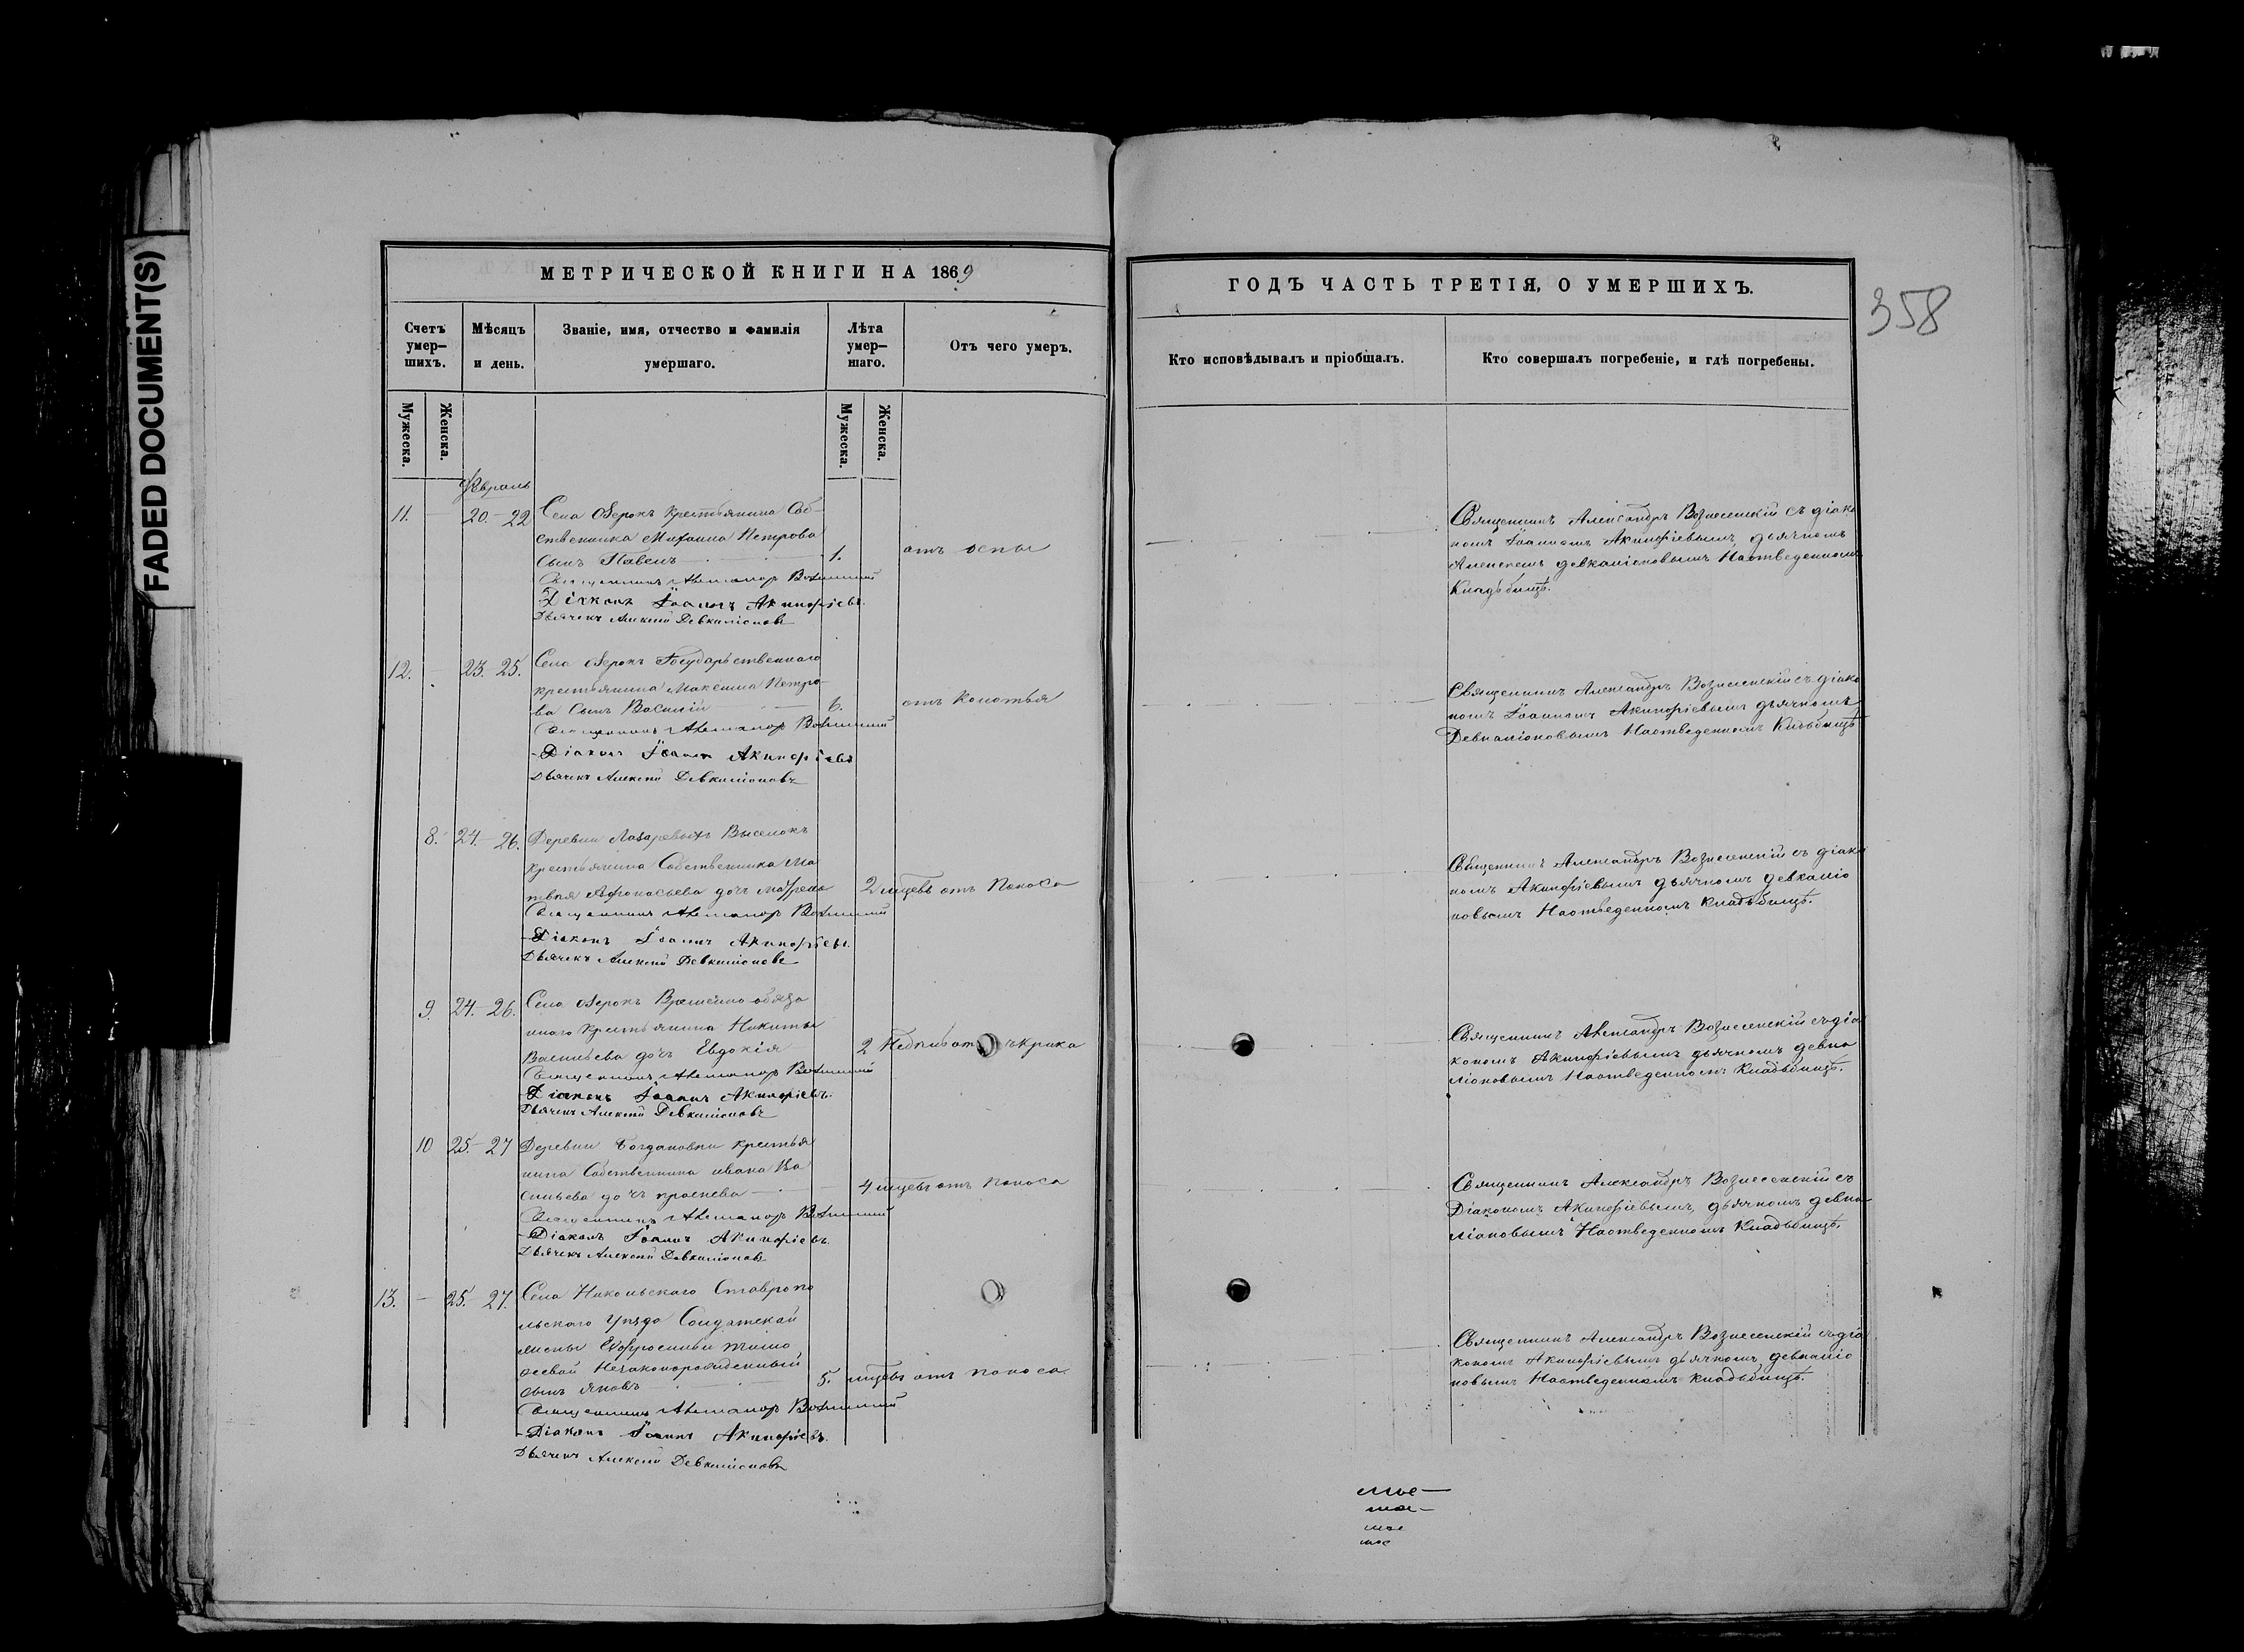 FADED DOCUMENT(S)
МЕТРИЧЕСКОЙ КНИГИ НА 1869
ГОДЪ ЧАСТЬ ТРЕТІЯ, О УМЕРШИХЪ.
358
Счетъ умер—шихъ.
Мѣсяцъ и день.
Званіе, имя, отчество и фамилія умершаго.
Лѣта умер—шаго.
Отъ чего умеръ.
Кто исповѣдывалъ и пріобщалъ.
Кто совершалъ погребеніе, и гдѣ погребены.
Мужеска.
Женска.
Мужеска.
Женска.
Февраль
11. — 20.—22 Села Озерокъ крестьянина Соб-
ственника Михаила Петрова
сынъ Павелъ 1. отъ оспы
Священникъ Александръ Вознесенскій
Діаконъ Іоаннъ Акинфіевъ.
Дьячекъ Алексѣй Девкаліоновъ
Священникъ Александръ Вознесенскій съ діако
номъ Іоанномъ Акинфіевымъ, дьячкомъ
Алексѣемъ девкаліоновымъ Наотведенномъ
Кладбищѣ.
12. — 23. 25. Села Озерокъ Государственнаго
крестьянина Максима Петро-
ва сынъ Василій 6. отъ колотья
Священникъ Александръ Вознесенскій
Діаконъ Іоаннъ Акинфіевъ
Дьячекъ Алексѣй Девкаліоновъ
Священникъ Александръ Вознесенскій съ діако
номъ Іоанномъ Акинфіевымъ дьячкомъ
Девкаліоновымъ Наотведенномъ Кладбищѣ
8. 24.—26. Деревни Лазаревыхъ Выселокъ
крестьянина Собственника Ма
твѣя Афонасьева дочь Матрена 2 мцевъ отъ Поноса
Священникъ Александръ Вознесенскій
Діаконъ Іоаннъ Акинфіевъ.
Дьячекъ Алексѣй Девкаліоновъ
Священникъ Александръ Вознесенскій съ діако
номъ Акинфіевымъ дьячкомъ девкаліо
новымъ Наотведенномъ Кладьбищѣ.
9. 24.—26. Села Озерокъ Временно-обяза
ннаго крестьянина Никиты
Васильева дочь Евдокія 2 Недѣль отъ крика
Священникъ Александръ Вознесенскій
Діаконъ Іоаннъ Акинфіевъ.
Дьячекъ Алексѣй Девкаліоновъ
Священникъ Александръ Вознесенскій съ діа
кономъ Акинфіевымъ дьячкомъ девка
ліоновымъ Наотведенномъ Кладьбищѣ.
10 25.—27 Деревни Богдановки крестья
нина Собственника ивана Ва
сильева дочь 4 мцевъ отъ Поноса
Священникъ Александръ Вознесенскій
Діаконъ Іоаннъ Акинфіевъ.
Дьячекъ Алексѣй Девкаліоновъ
Священникъ Александръ Вознесенскій съ
Діакономъ Акинфіевымъ, дьячкомъ девка
ліоновымъ Наотведенномъ Кладьбищѣ.
13. — 25.—27. Села Никольскаго Ставропо
льскаго уѣзда Солдатской
жены Ефросиніи Тимо
ѳеевой Незаконорожденный
сынъ Яковъ 5. мцевъ отъ поноса
Священникъ Александръ Вознесенскій
Діаконъ Іоаннъ Акинфіевъ.
Дьячекъ Алексѣй Девкаліоновъ
Священникъ Александръ Вознесенскій съ діа
кономъ Акинфіевымъ дьячкомъ девкаліо
новымъ Наотведенномъ кладьбищѣ.